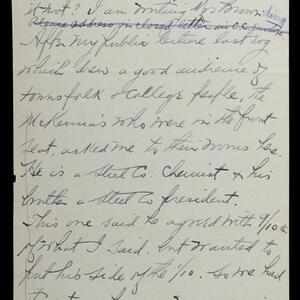 it not? I am writing Mrs Brown
Please address in closed letter in C.C.
After my public lecture last eog
which drew a good audience of
townsfolk & College people, the
McKennas who were in the front
seat, asked me to their
He is a Steel Co. Chemist & his
brother a Steel Co president.
This one said he agreed with 9/10ths
of what I said, but wanted to
put his side of the 1/10. So we had